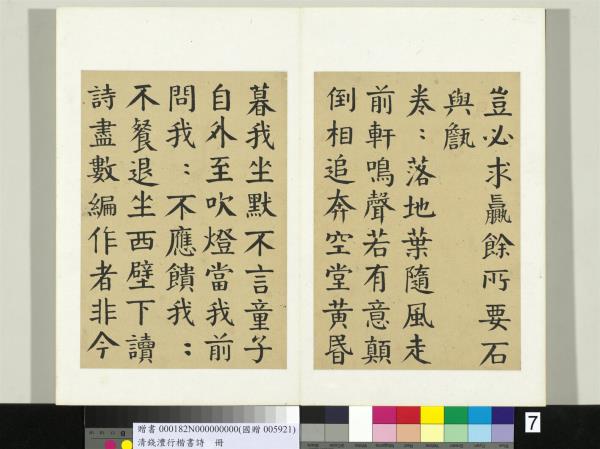 豈必求贏餘所要石
與甔
桊〻落地葉隨風走
前軒鳴聲若有意顛
倒相追奔空堂黄昬
暮我坐默不言童子
自外至吹燈當我前
問我〻不應饋我〻
不餐退坐西壁下讀
詩盡數編作者非今
7
贈書 000182N000000000(國贈 005921)
清錢灃行楷書詩 冊